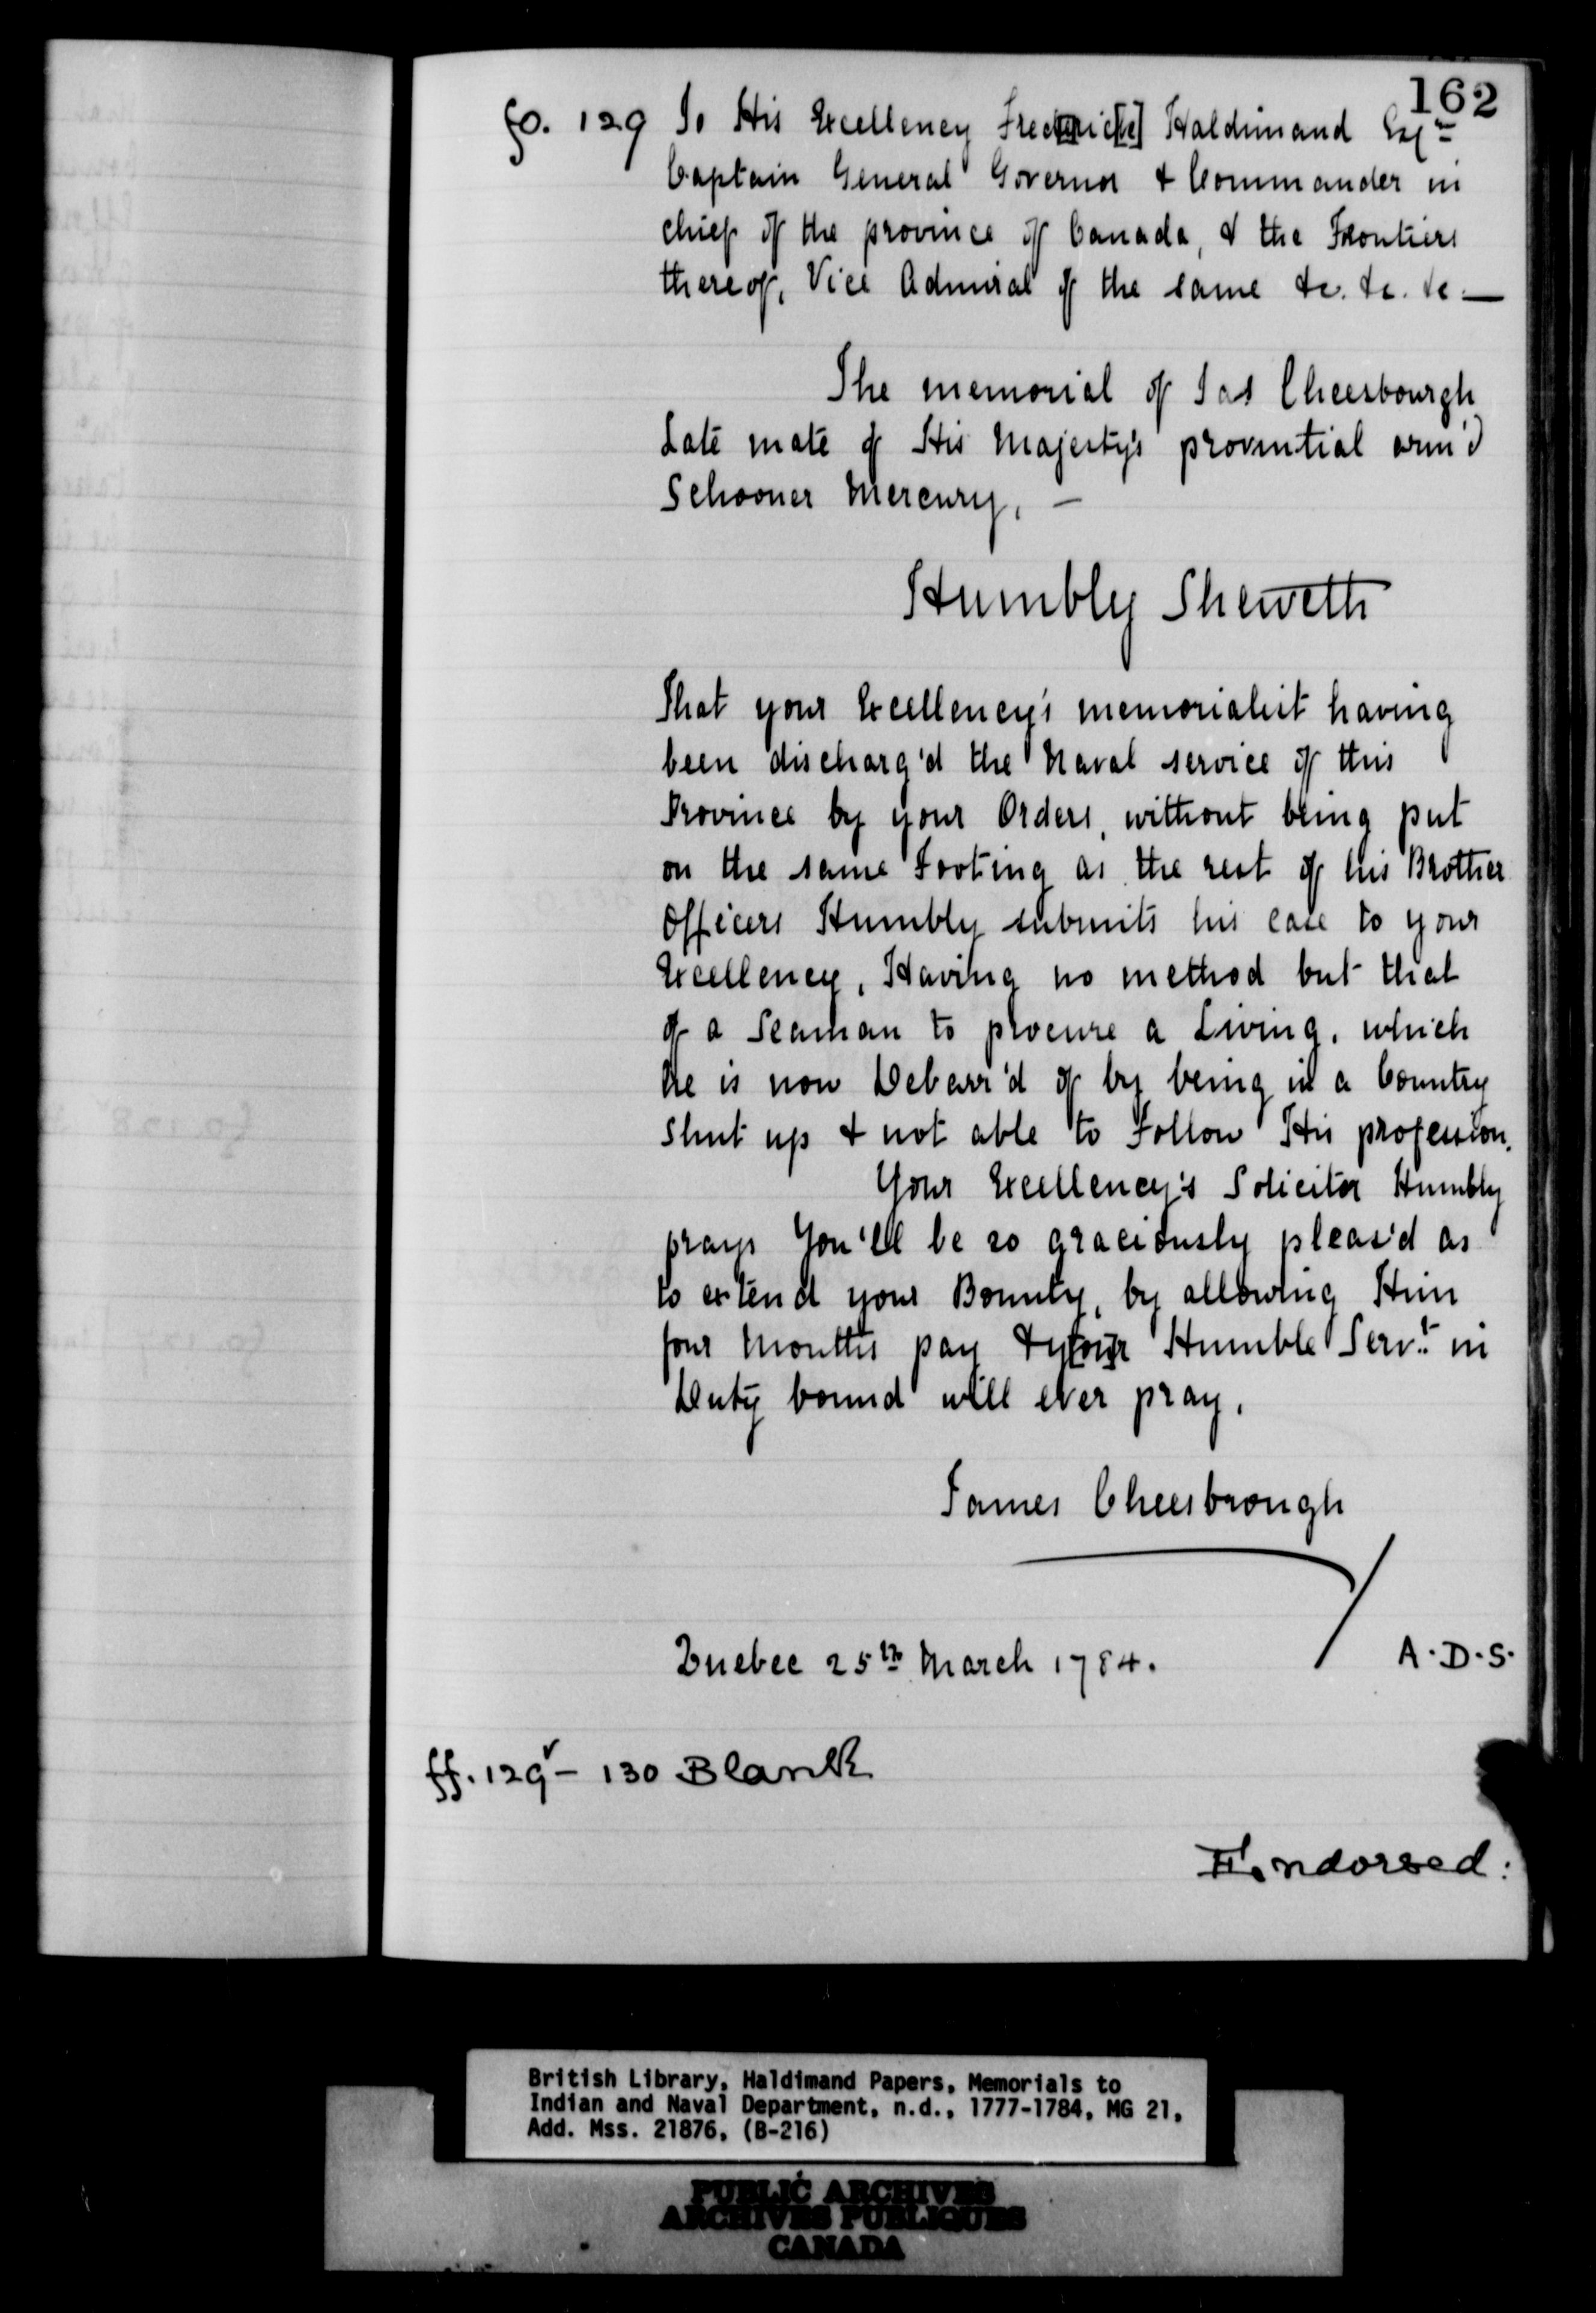 162
fo. 129 To His Excellency Frederic[k] Haldimand Esqr
Captain General Governor & Commander in
chief of the province of Canada, & the Frontiers
thereof, Vice Admiral of the same &c. &c. &c —
The memorial of Jas Cheesbourgh
Late mate of His Majesty's provintial arm'd
Schooner Mercury, —
Humbly Sheweth
That your Excellency's memorialist having
been discharg'd the Naval service of this
Province by your Orders, without being put
on the same Footing as the rest of his Brother
Officers Humbly submits his case to your
Excellency, Having no method but that
of a Seaman to procure a Living, which
he is now Debarr'd of by being in a Country
Shut up & not able to Follow His profession.
Your Excellency's Solicitor Humbly
prays You'll be so graciously pleas'd as
to extend your Bounty, by allowing Him
four Months pay & y[ou]r Humble Servt in
Duty bound will ever pray,
James Cheesbrough
Quebec 25th March 1784.
A.D.S.
ff. 129v – 130 Blank
Endorsed:
British Library, Haldimand Papers, Memorials to
Indian and Naval Department, n.d., 1777-1784, MG 21,
Add. Mss. 21876, (B-216)
PUBLIC ARCHIVES
ARCHIVES PUBLIQUES
CANADA